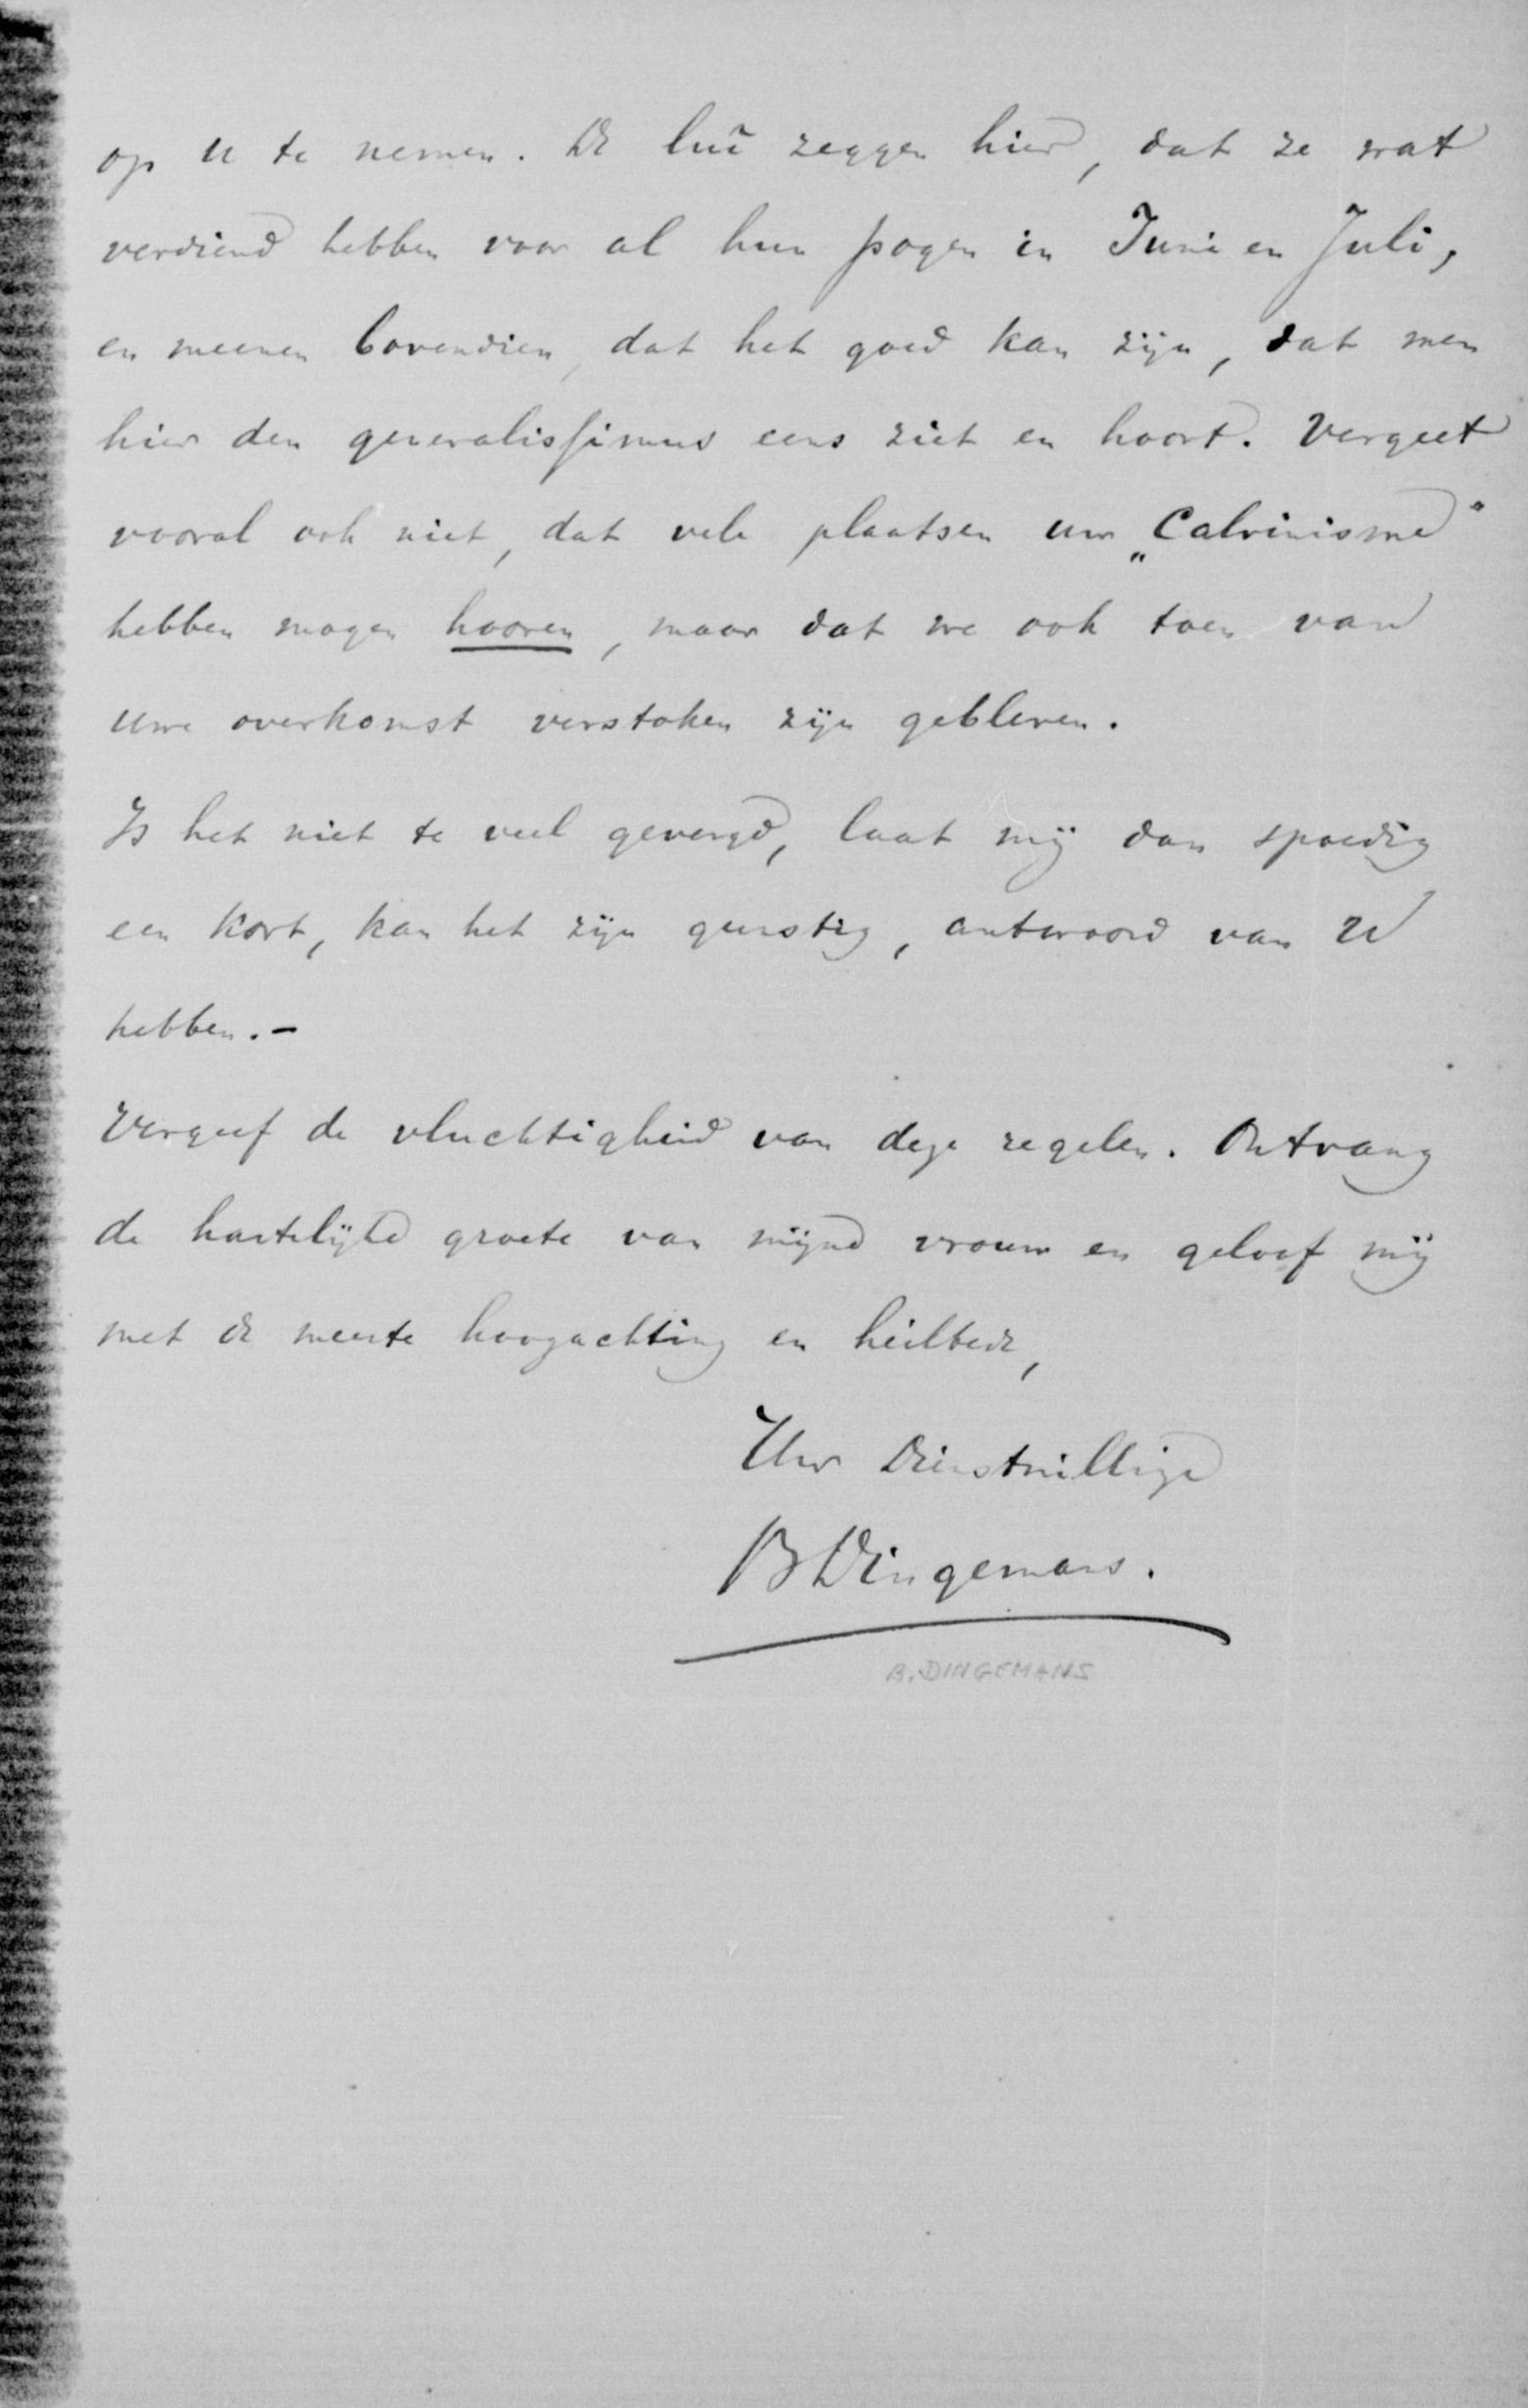 op U te nemen. De luî zeggen hier, dat ze wat
verdiend hebben voor al hun pogen in Juni en Juli,
en meenen bovendien, dat het goed kan zijn, dat men
hier den generalissimus eens ziet en hoort. Vergeet
vooral ook niet, dat vele plaatsen uw „Calvinisme"
hebben mogen hooren, maar dat we ook toen van
uwe overkomst verstoken zijn gebleven.
Is het niet te veel gevergd, laat mij dan spoedig
een kort, kan het zijn gunstig, antwoord van U
hebben.-
Vergeef de vluchtigheid van deze regelen. Ontvang
de hartelijke groete van mijne vrouw en geloof mij
met de meeste hoogachting en heilbede,
Uw Dienstwillige
B Dingemans.
B. DINGEMANS